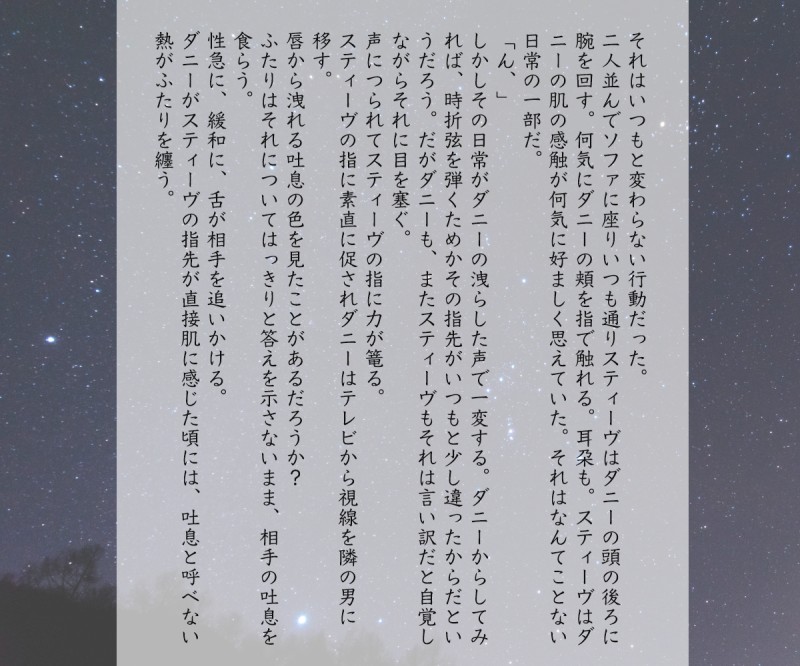 それはいつもと変わらない行動だった。
二人並んでソファに座りいつも通りスティーヴはダニーの頭の後ろに
腕を回す。何気にダニーの頬を指で触れる。耳朶も。スティーヴはダ
ニーの肌の感触が何気に好ましく思えていた。それはなんてことない
日常の一部だ。
「ん、」
しかしその日常がダニーの洩らした声で一変する。ダニーからしてみ
れば、時折弦を弾くためかその指先がいつもと少し違ったからだとい
うだろう。だがダニーも、またスティーヴもそれは言い訳だと自覚し
ながらそれに目を塞ぐ。
声につられてスティーヴの指に力が篭る。
スティーヴの指に素直に促されダニーはテレビから視線を隣の男に
移す。
唇から洩れる吐息の色を見たことがあるだろうか？
ふたりはそれについてはっきりと答えを示さないまま、相手の吐息を
食らう。
性急に、緩和に、舌が相手を追いかける。
ダニーがスティーヴの指先が直接肌に感じた頃には、吐息と呼べない
熱がふたりを纏う。